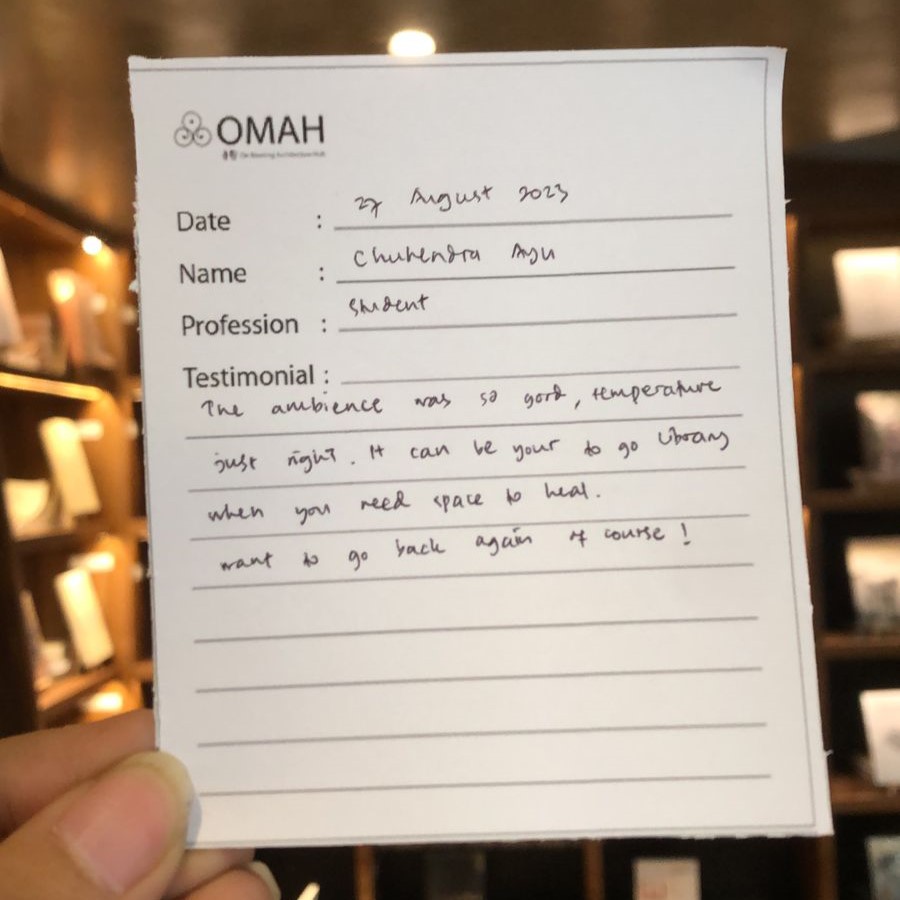 OMAH
Date : 27 August 2023
Name : Chuhendra Ayu
Profession : Student
Testimonial :
The ambience was so good, temperature
just right. It can be your to go library
when you need space to heal.
want to go back again of course!